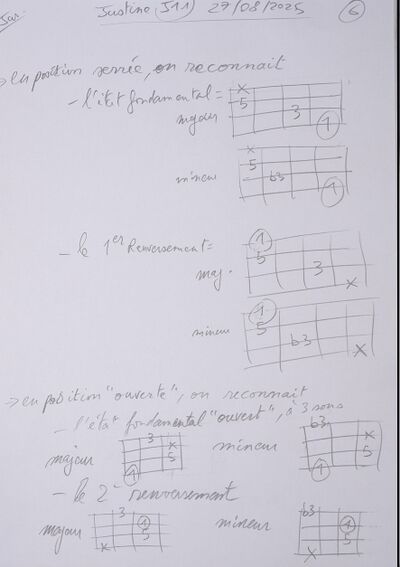 Justine (J11) 27/08/2025 6
→ en position serrée, on reconnait
- l'état fondamental =
majeur
X
5
3
1
mineur
X
5
b3
1
- le 1er Renversement =
maj.
1
5
3
X
mineur
1
5
b3
X
→ en position "ouverte", on reconnait
- l'état fondamental "ouvert", à 3 sons
majeur
3
X
5
1
mineur
b3
X
5
1
- le 2e renversement
majeur
3
1
5
X
mineur
b3
1
5
X